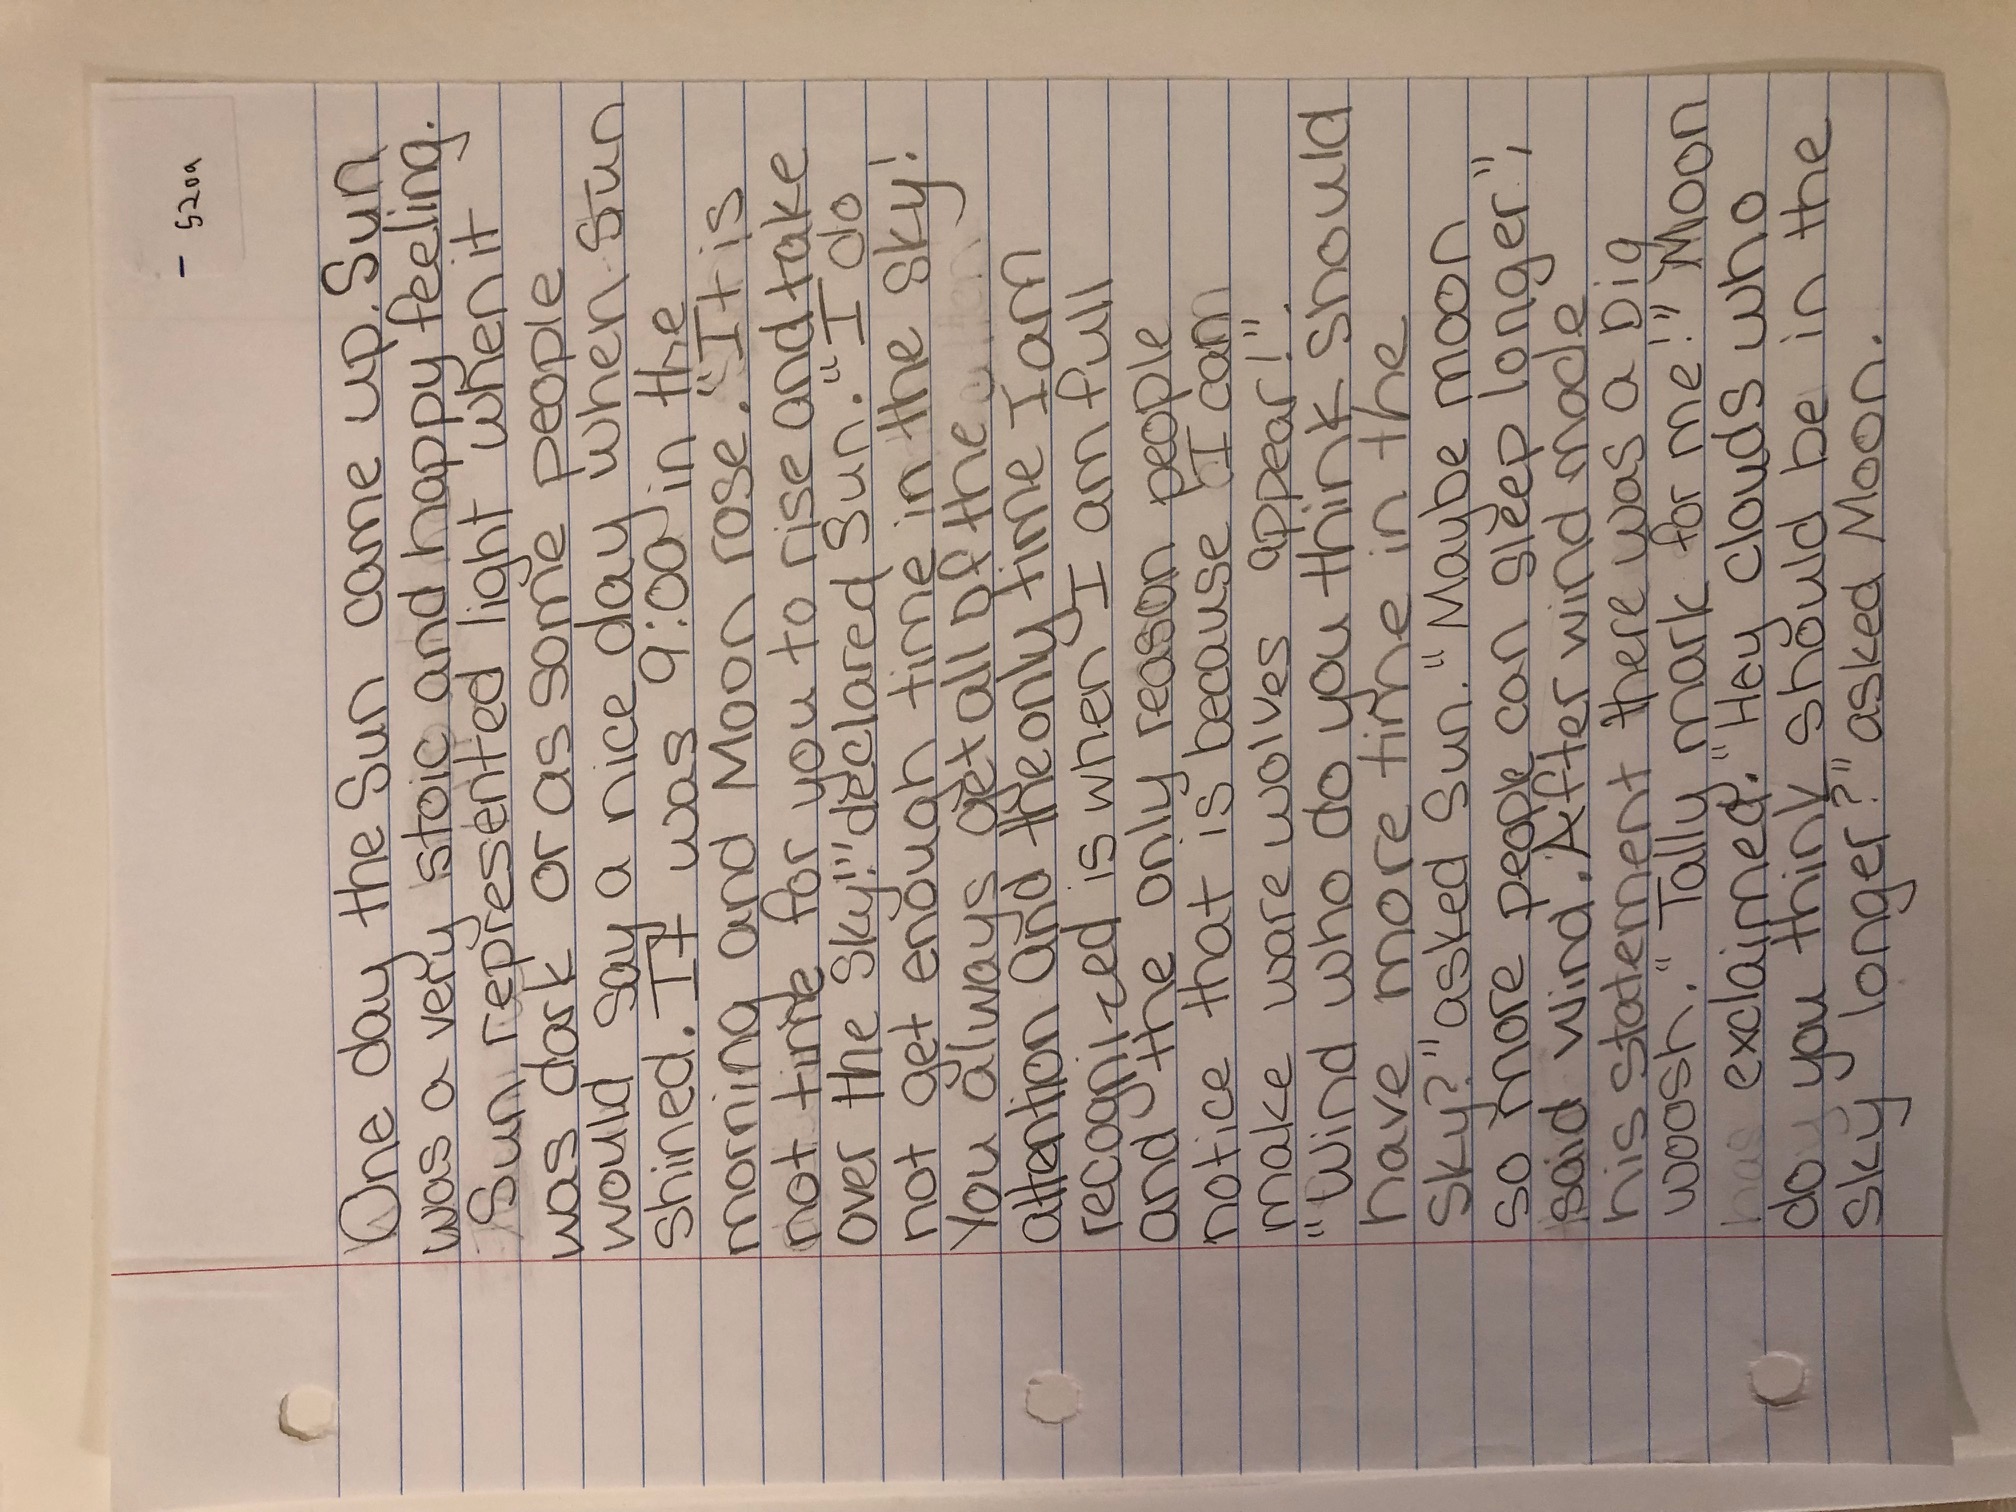 - S20a
One day the Sun came up. Sun
was a very stoic and happy feeling.
Sun represented light when it
was dark or as some people
would say a nice day when Sun
shined. It was 9:00 in the
morning and Moon rose. "It is
not time for you to rise and take
over the sky!" declared Sun. "I do
not get enough time in the sky!
You always get all of the
attention and the only time I am
recognized is when I am full
and the only reason people
notice that is because I can
make warewolves appear!".
"Wind who do you think should
have more time in the
sky?" asked Sun. "Maybe moon
so more people can sleep longer",
said Wind. After wind made
his statement there was a big
woosh. "Tally mark for me!" Moon
exclaimed. "Hey Clouds who
do you think should be in the
sky longer?" asked Moon.